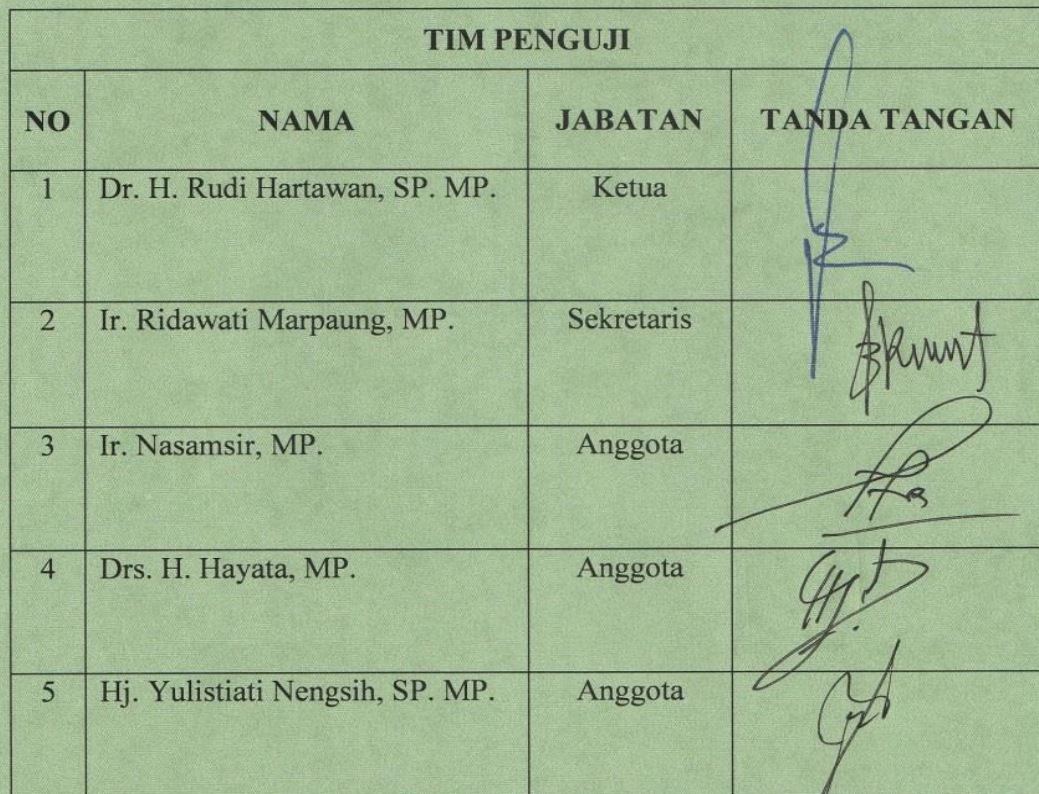 TIM PENGUJI
NO NAMA JABATAN TANDA TANGAN
1 Dr. H. Rudi Hartawan, SP. MP. Ketua
2 Ir. Ridawati Marpaung, MP. Sekretaris
3 Ir. Nasamsir, MP. Anggota
4 Drs. H. Hayata, MP. Anggota
5 Hj. Yulistiati Nengsih, SP. MP. Anggota